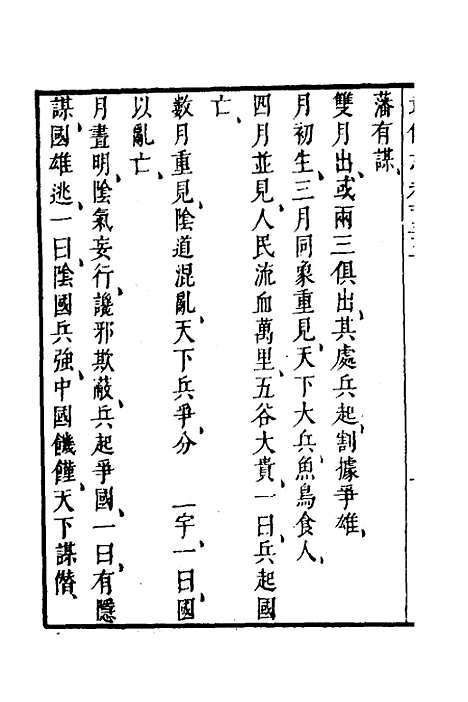 藩有謀、
雙月出、或兩三俱出、其處兵起、割據爭雄、
月初生、三月同象重見、天下大兵、魚鳥食人、
四月並見、人民流血萬里、五谷大貴、一曰、兵起國
亡、
數月重見、陰道混亂、天下兵爭、分　一宇、一曰、國
以亂亡、
月晝明、陰氣妄行、讒邪欺蔽、兵起爭國、一曰、有隱
謀、國雄逃、一曰、陰國兵強、中國饑饉、天下謀僭、